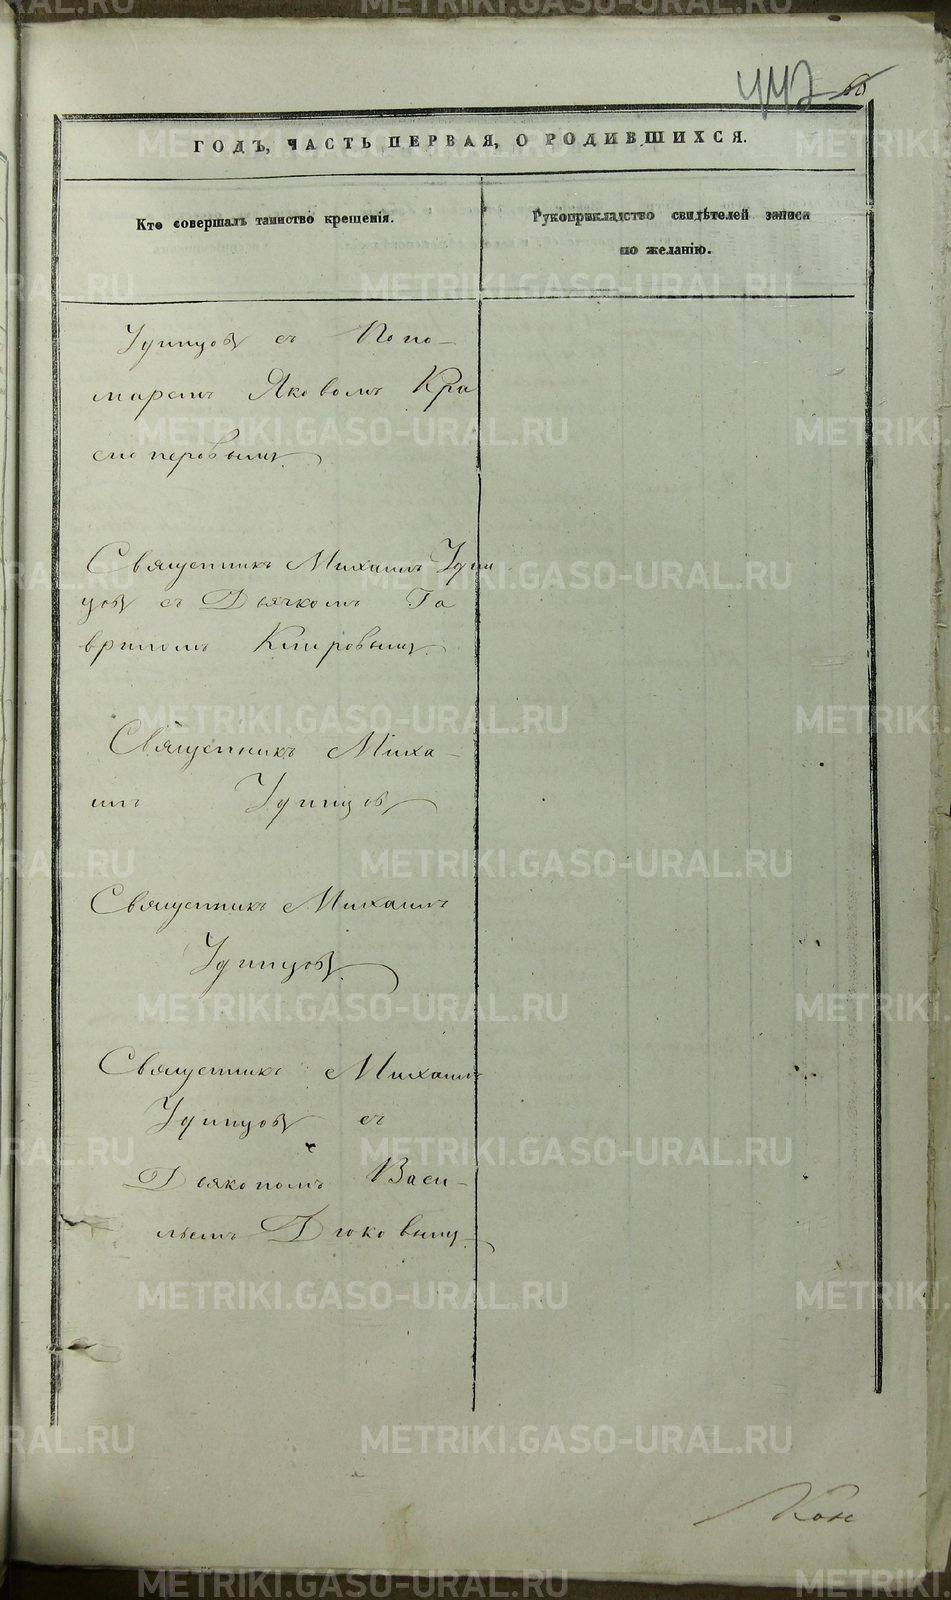 447 66
ГОДЪ, ЧАСТЬ ПЕРВАЯ, О РОДИВШИХСЯ.
Кто совершалъ таинство крещенія.
Рукоприкладство свидѣтелей записи
по желанію.
Удинцовъ съ Поно-
маремъ Яковомъ Кра
сноперовымъ
Священникъ Михаилъ Удин
цовъ съ Дьячкомъ Га
вриломъ Кипровымъ
Священникъ Миха-
илъ Удинцовъ
Священникъ Михаилъ
Удинцовъ
Священникъ Михаилъ
Удинцовъ съ
Дьякономъ Васи-
льемъ Дюковымъ
METRIKI.GASO-URAL.RU